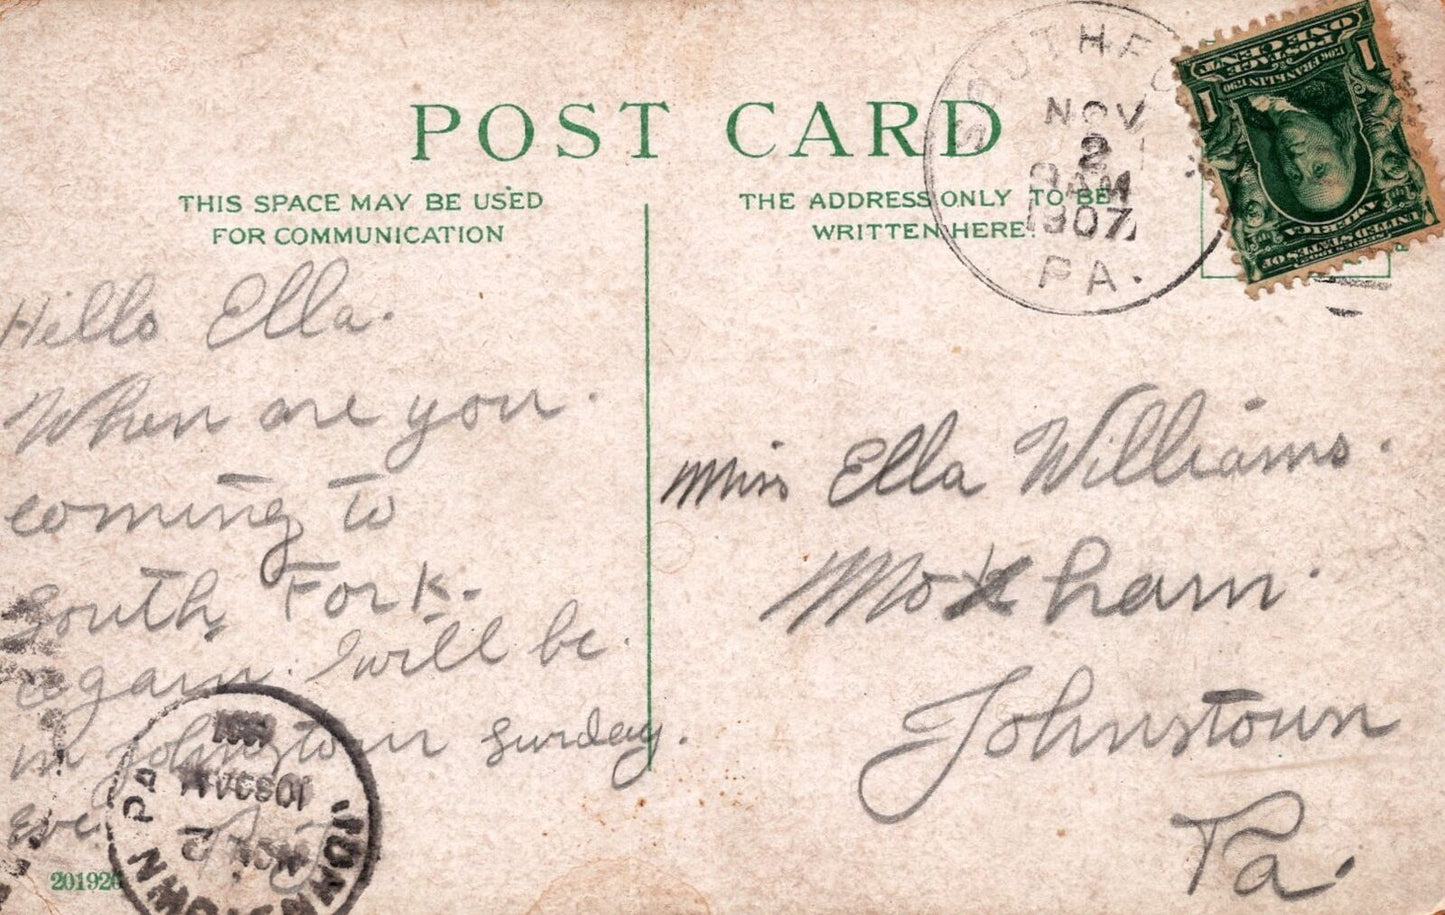 POST CARD
THIS SPACE MAY BE USED
FOR COMMUNICATION
THE ADDRESS ONLY TO BE
WRITTEN HERE.
SOUTH FO
NOV
2
AM
1907
PA.
ONE CENT
POSTAGE
FRANKLIN
1 1
UNITED STATES OF
AMERICA
Hello Ella.
When are you.
coming to
South Fork.
again. I will be.
in Johnstown Sunday.
Eve.
Miss Ella Williams.
Moxham.
Johnstown
Pa.
JOHNSTOWN PA
NOV 2
1030AM
1907
201926